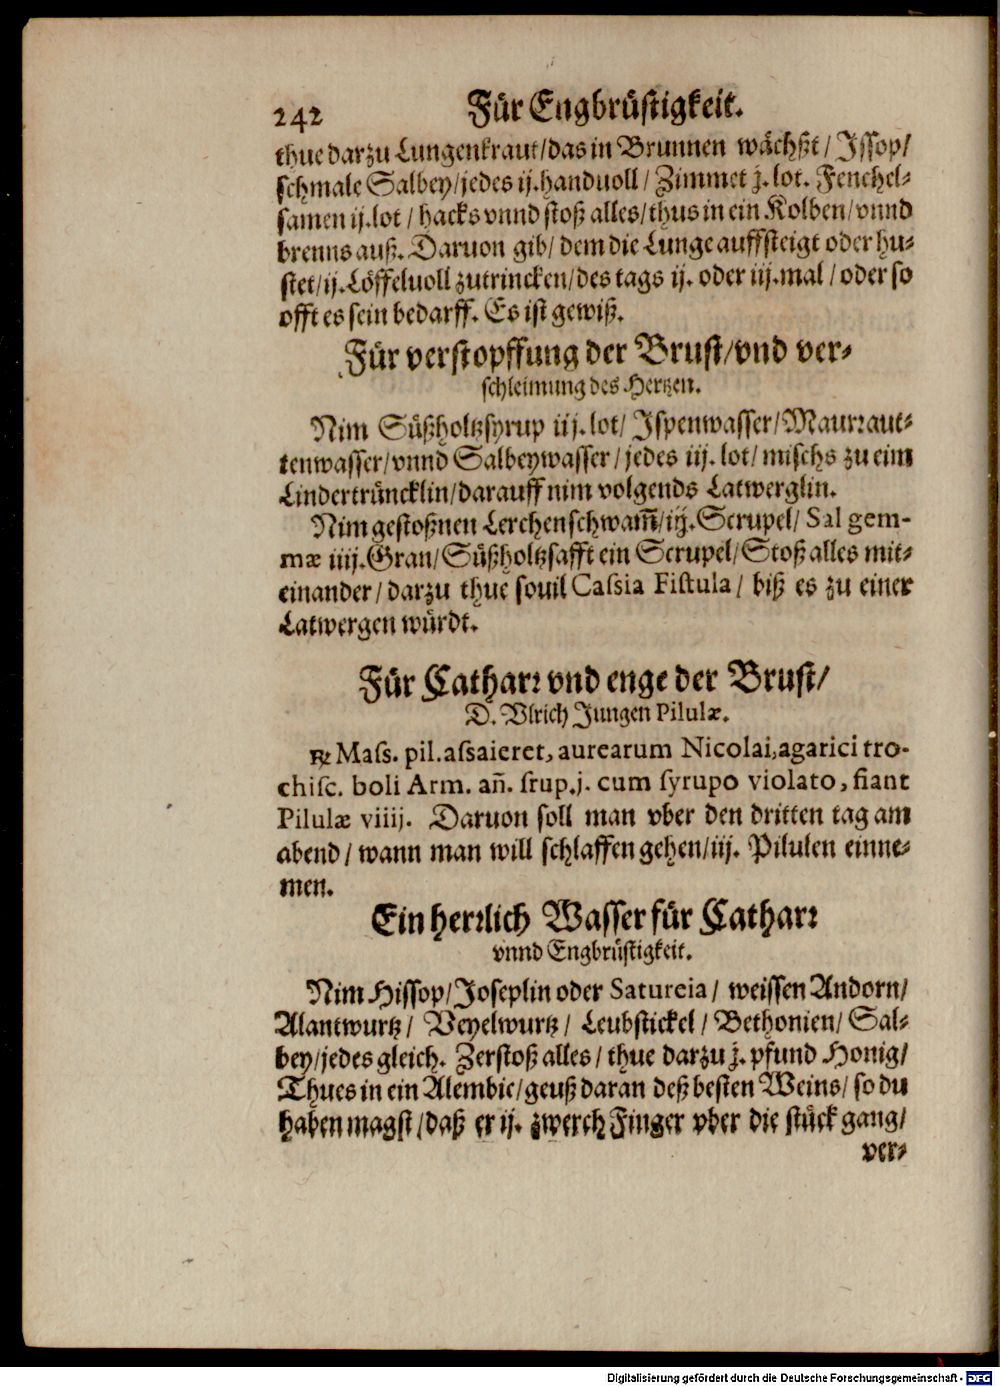 242 Für Engbrüstigkeit.
thue darzu Lungenkraut/das in Brunnen wächßt/ Issop/
schmale Salbey/jedes ij.handuoll/ Zimmet j. lot. Fenchel-
samen ij.lot/ hacks vnnd stoß alles/thus in ein Kolben/vnnd
brenns auß. Daruon gib/ dem die Lunge auffsteigt oder hu-
stet/ij.Löffeluoll zutrincken/des tags ij. oder iij.mal/oder so
offt es sein bedarff. Es ist gewiß.
Für verstopffung der Brust/vnd ver-
schleimung des Hertzen.
Nim Süßholtzsyrup iij. lot/ Ispenwasser/Maurraut-
tenwasser/vnnd Salbeywasser/jedes iij. lot/ mischs zu eim
Lindertrüncklin/darauff nim volgends Latwerglin.
Nim gestoßnen Lerchenschwam̃/iij. Scrupel/ Sal gem-
mæ iiij. Gran/Süßholtzsafft ein Scrupel/Stoß alles mit-
einander/darzu thue souil Cassia Fistula/ biß es zu einer
Latwergen würdt.
Für Catharr vnd enge der Brust/
D. Vlrich Jungen Pilulæ.
℞ Mass. pil. assaieret, aurearum Nicolai, agarici tro-
chisc. boli Arm. añ. srup.j. cum syrupo violato, fiant
Pilulæ viiij. Daruon soll man vber den dritten tag am
abend/ wann man will schlaffen gehen/iij. Pilulen einne-
men.
Ein herrlich Wasser für Catharr
vnnd Engbrüstigkeit.
Nim Hissop/Joseplin oder Satureia/ weissen Andorn/
Alantwurtz/ Veyelwurtz/ Leubstickel/ Bethonien/ Sal-
bey/jedes gleich. Zerstoß alles/ thue darzu j. pfund Honig/
Thues in ein Alembic/geuß daran deß besten Weins/ so du
haben magst/daß er ij. zwerch Finger vber die stück gang/
ver-
Digitalisierung gefördert durch die Deutsche Forschungsgemeinschaft - DFG